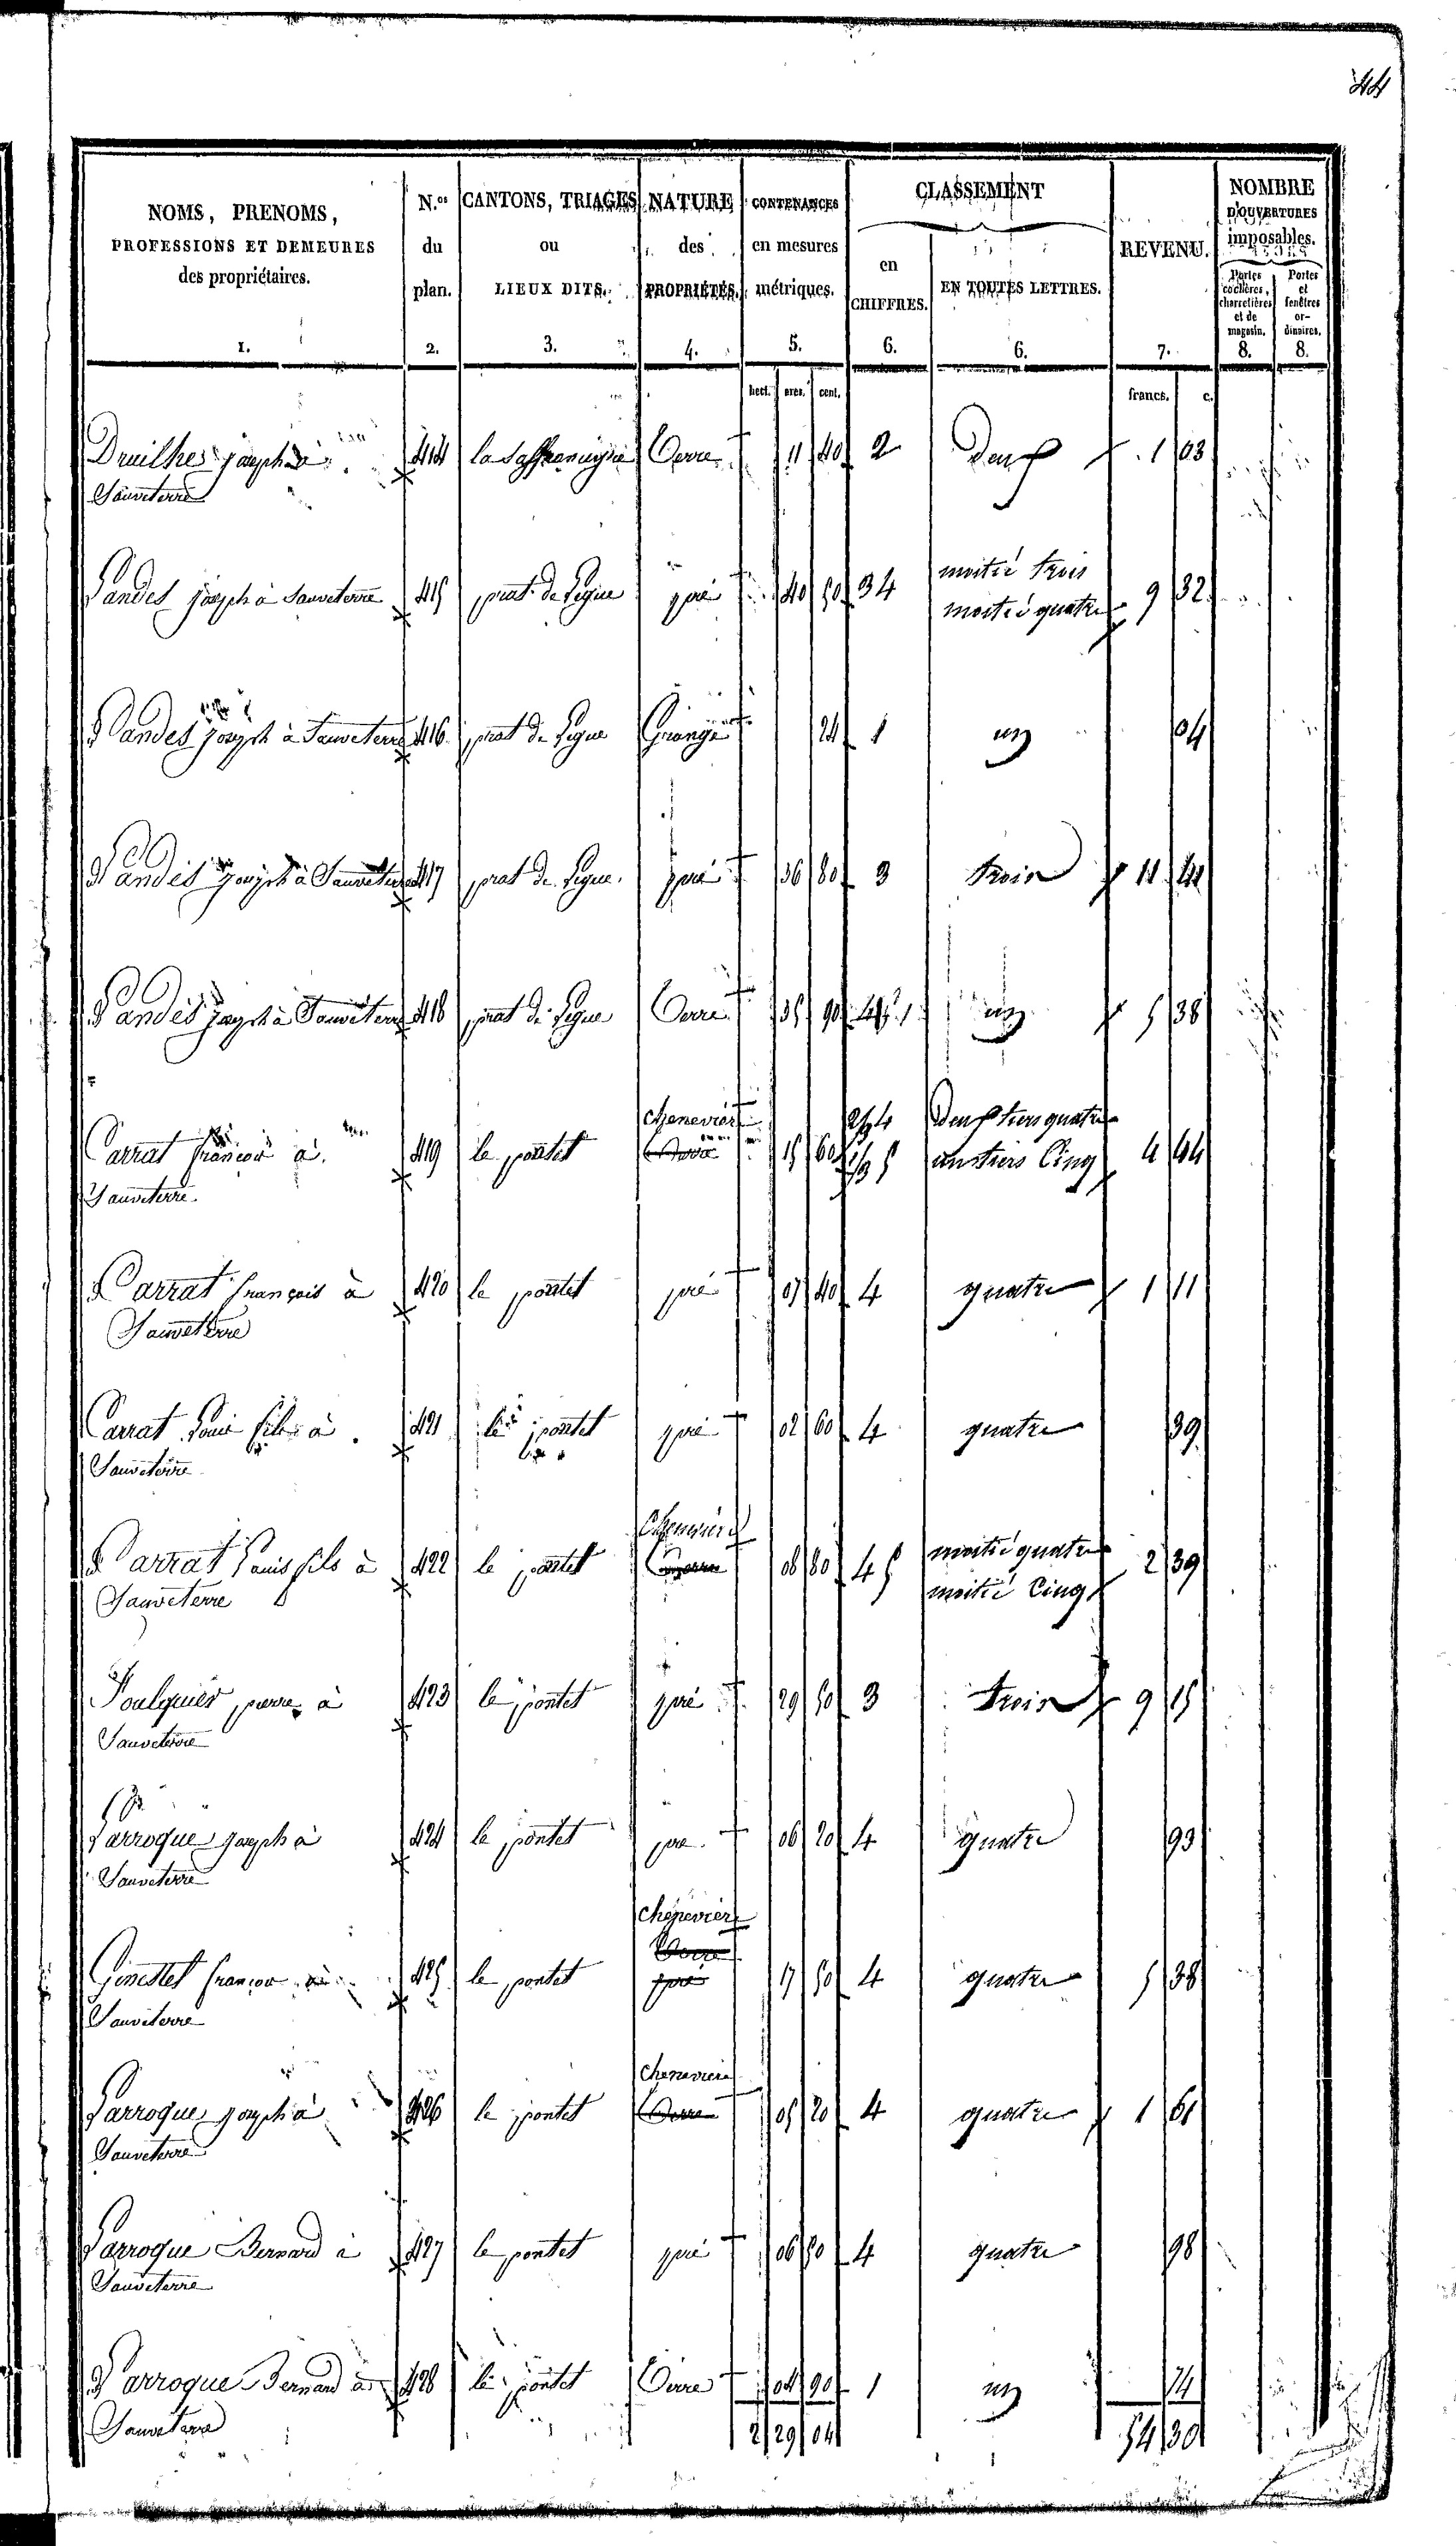 44
NOMS, PRENOMS, PROFESSIONS ET DEMEURES des propriétaires. 1.
N.os du plan. 2.
CANTONS, TRIAGES ou LIEUX DITS. 3.
NATURE des PROPRIÉTÉS. 4.
CONTENANCES en mesures métriques. 5.
CLASSEMENT
en CHIFFRES. 6.
EN TOUTES LETTRES. 6.
REVENU. 7.
NOMBRE D'OUVERTURES imposables.
Portes cochères, charretières et de magasin. 8.
Portes et fenêtres ordinaires. 8.
hect. ares. cent. francs. c.
Druilhes joseph à 414 Terre 11 40 2 Deux 1 03
Sauveterre
moitié trois
Landes joseph à Sauveterre 415 prat de pré 40 50 34 9 32
moitié quatre
Landes joseph à Sauveterre 416 prat de Grange 24 1 un 04
Landes joseph à Sauveterre 417 prat de pré 36 80 3 trois 11 41
Landes joseph à Sauveterre 418 prat de Terre 35 90 1 un 5 38
chenevière 2/3 4 Deux tiers quatre
Carrat françois à 419 le pontet Terre 15 60 4 44
1/3 5 un tiers Cinq
Sauveterre
Carrat françois à 420 le pontet pré 07 40 4 quatre 1 11
Sauveterre
Carrat Louis fils à 421 le pontet pré 02 60 4 quatre 39
Sauveterre
Chenevière moitié quatre
Carrat Louis fils à 422 le pontet 08 80 4 5 2 39
moitié Cinq
Sauveterre
Foulquier pierre à 423 le pontet pré 29 50 3 trois 9 15
Sauveterre
Larroque joseph à 424 le pontet pré 06 20 4 quatre 93
Sauveterre
Chenevière
Terre
Ginestet françois à 425 le pontet pré 17 50 4 quatre 5 38
Sauveterre
Chenevière
Larroque joseph à 426 le pontet Terre 05 20 4 quatre 1 61
Sauveterre
Larroque Bernard à 427 le pontet pré 06 50 4 quatre 98
Sauveterre
Larroque Bernard à 428 le pontet Terre 04 90 1 un 74
Sauveterre
2 29 04 54 30